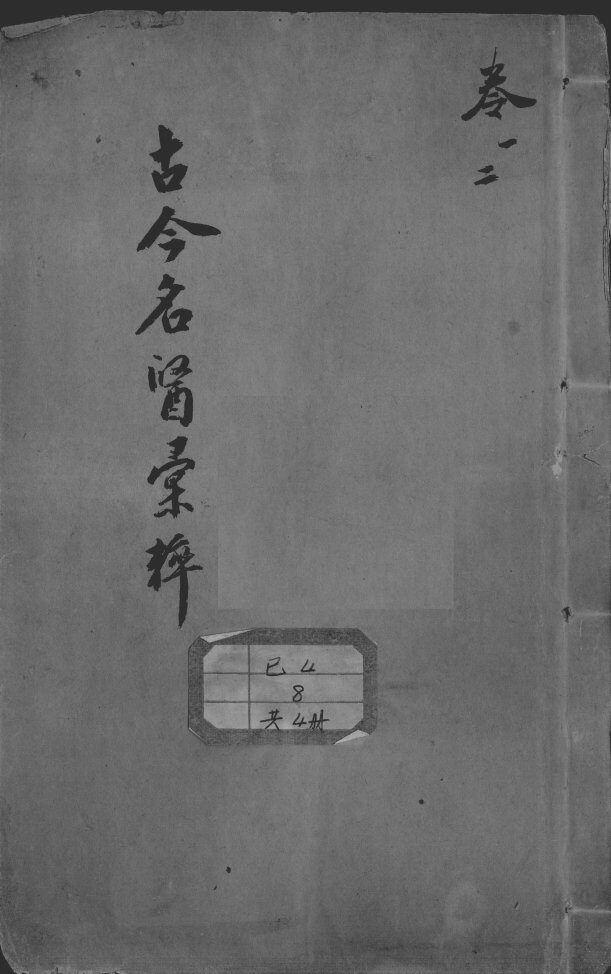 卷一二
古今名醫彙粹
已 4
8
共4册